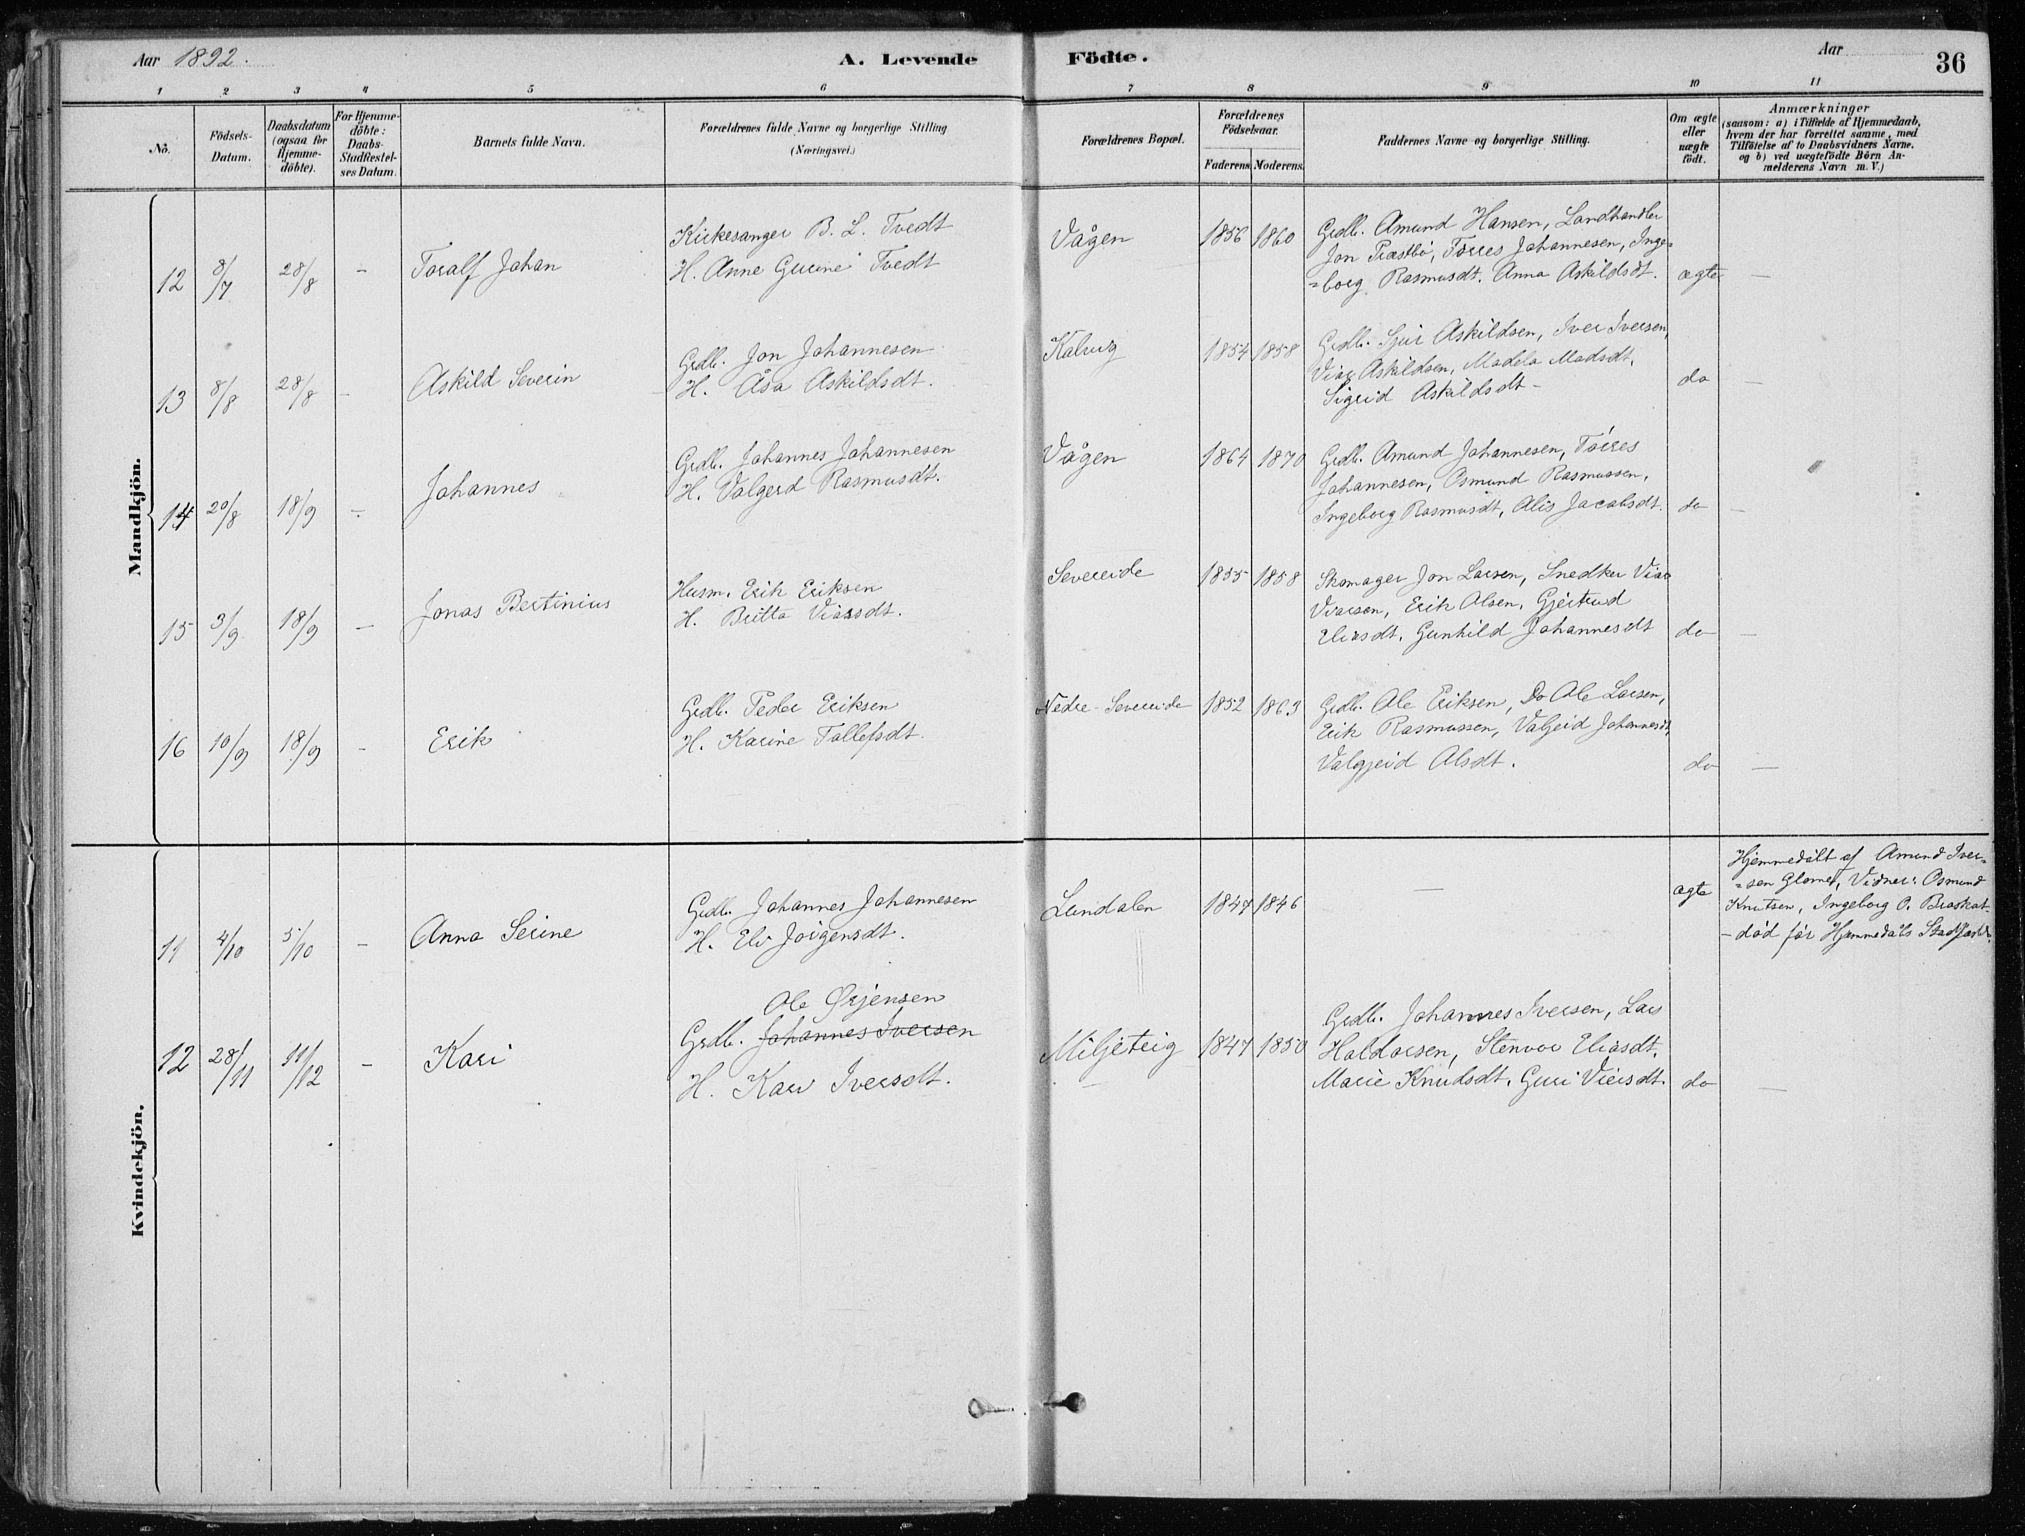 Aar 1892.
A. Levende Födte.
Aar
36
1 2 3 4 5 6 7 8 9 10 11
No.
Födsels-
Datum.
Daabsdatum
(ogsaa for
Hjemme-
döbte).
For Hjemme-
döbte:
Daabs-
Stadfæstel-
ses Datum.
Barnets fulde Navn.
Forældrenes fulde Navne og borgerlige Stilling
(Næringsvei.)
Forældrenes Bopæl.
Forældrenes
Födselsaar.
Faderens. Moderens.
Faddernes Navne og borgerlige Stilling.
Om ægte
eller
uægte
födt.
Anmærkninger
(saasom: a) i Tilfælde af Hjemmedaab,
hvem der har forrettet samme, med
Tilföielse af to Daabsvidners Navne.
og b) ved uægtefödte Börn An-
melderens Navn m. V.)
Mandkjön.
12 8/7 28/8 - Toralf Johan
Kirkesanger B. L. Tvedt
H. Anne Gurine Tvedt
Vågen 1856 1860
Grdb. Amund Hansen, Landhandler
Jon Præstbø, Tørres Johannesen, Inge-
=borg Rasmusdt. Anna Askildsdt.
ægte —
13 8/8 28/8 - Askild Severin
Grdb. Jon Johannesen
H. Åsa Askildsdt.
Kalvig 1854 1858
Grdb. Sjur Askildsen, Iver Iversen,
Viar Askildsen, Madela Madsdt.
Sigrid Askildsdt —
do —
14 20/8 18/9 - Johannes
Grdb. Johannes Johannesen
H. Valgerd Rasmusdt.
Vågen 1864 1870
Grdb. Amund Johannesen, Tørres
Johannesen, Osmund Rasmussen,
Ingeborg Rasmusdt, Alis Jacobsdt.
do —
15 3/9 18/9 - Jonas Bertinius
Husm. Erik Eriksen
H. Britta Viarsdt.
Severeide 1855 1858
Skomager Jon Larsen, Snedker Viar
Viarsen, Erik Olsen, Gjertrud
Eliasdt. Gunhild Johannesdt
do —
16 10/9 18/9 - Erik
Grdb. Peder Eriksen
H. Karine Tollefsdt.
Nedre-Severeide 1852 1863
Grdb. Ole Eriksen, Do Ole Larsen,
Erik Rasmussen, Valgjerd Johannesdt,
Valgjerd Olsdt.
do —
Kvindekjön.
11 4/10 5/10 - Anna Serine
Grdb. Johannes Johannesen
H. Eli Jørgensdt.
Lundalen 1847 1846
—
ægte
Hjemmedøbt af Amund Iver-
=sen Vidner: Osmund
Knutsen, Ingeborg O.
- død før Hjemmedåbs
12 28/11 11/12 - Kari
Ole Ørjensen
Grdb. Johannes Iversen
H. Kari Iversdt.
Miljeteig 1847 1850
Grdb. Johannes Iversen, Lars
Haldorsen, Stenvor Eliasdt.
Marie Knudsdt. Guri Viersdt.
do —